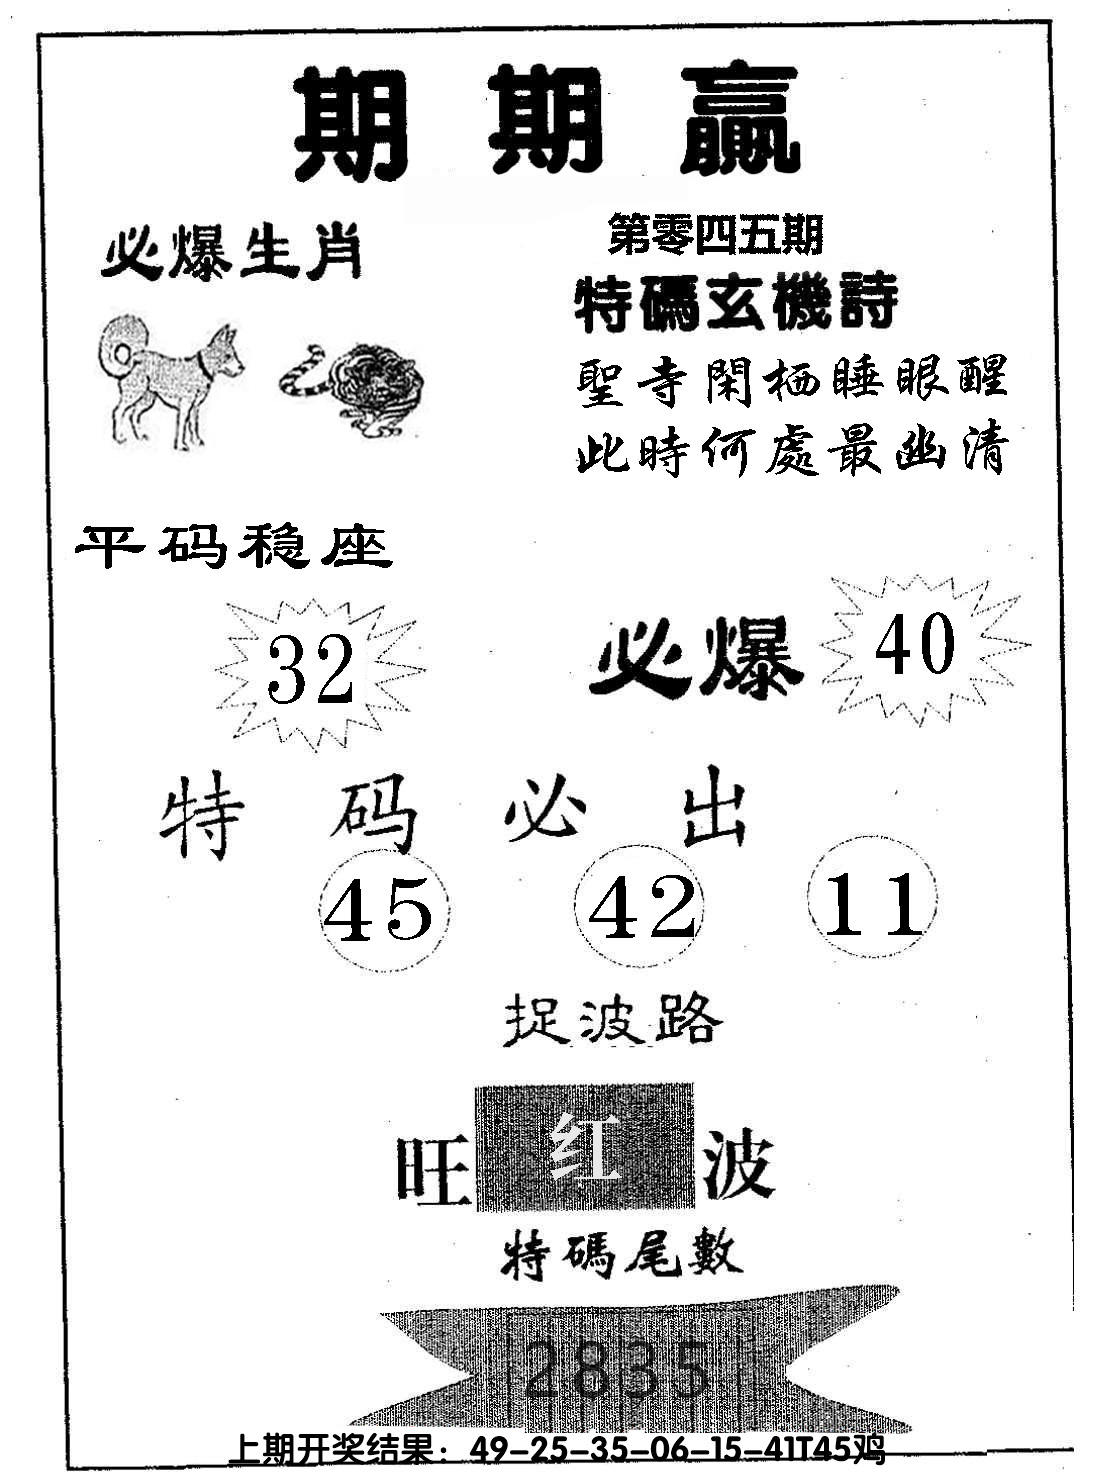 期期贏
必爆生肖
第零四五期
特碼玄機詩
聖寺閑栖睡眼醒
此時何處最幽清
平码稳座
32
必爆 40
特码必出
45 42 11
捉波路
旺 红 波
特碼尾數
2835
上期开奖结果：49-25-35-06-15-41T45鸡